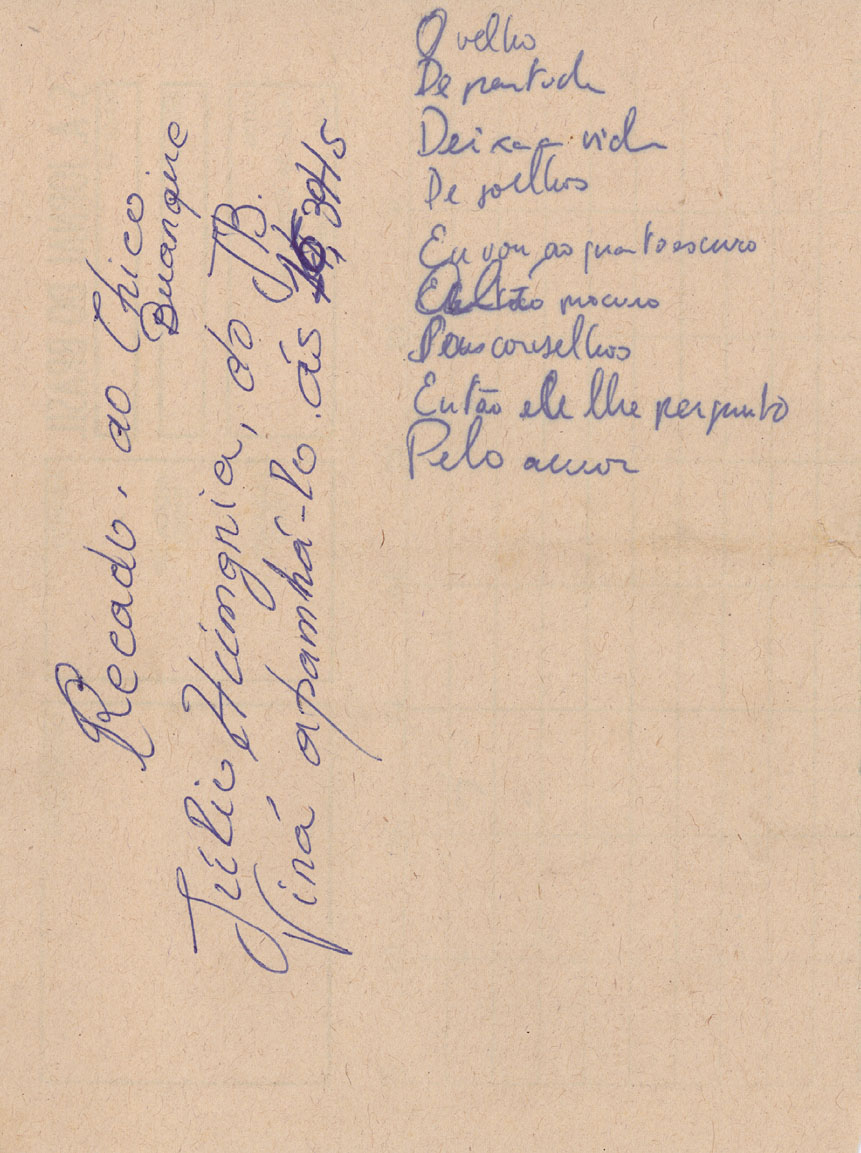 Recado, ao Chico
Buarque
Júlio Hungria, do JB.
Virá apanhá-lo. ás
O velho
De partida
Deixa a vida
De joelhos
Eu vou ao quarto escuro
procuro
conselhos
Então lhe pergunto
Pelo amor